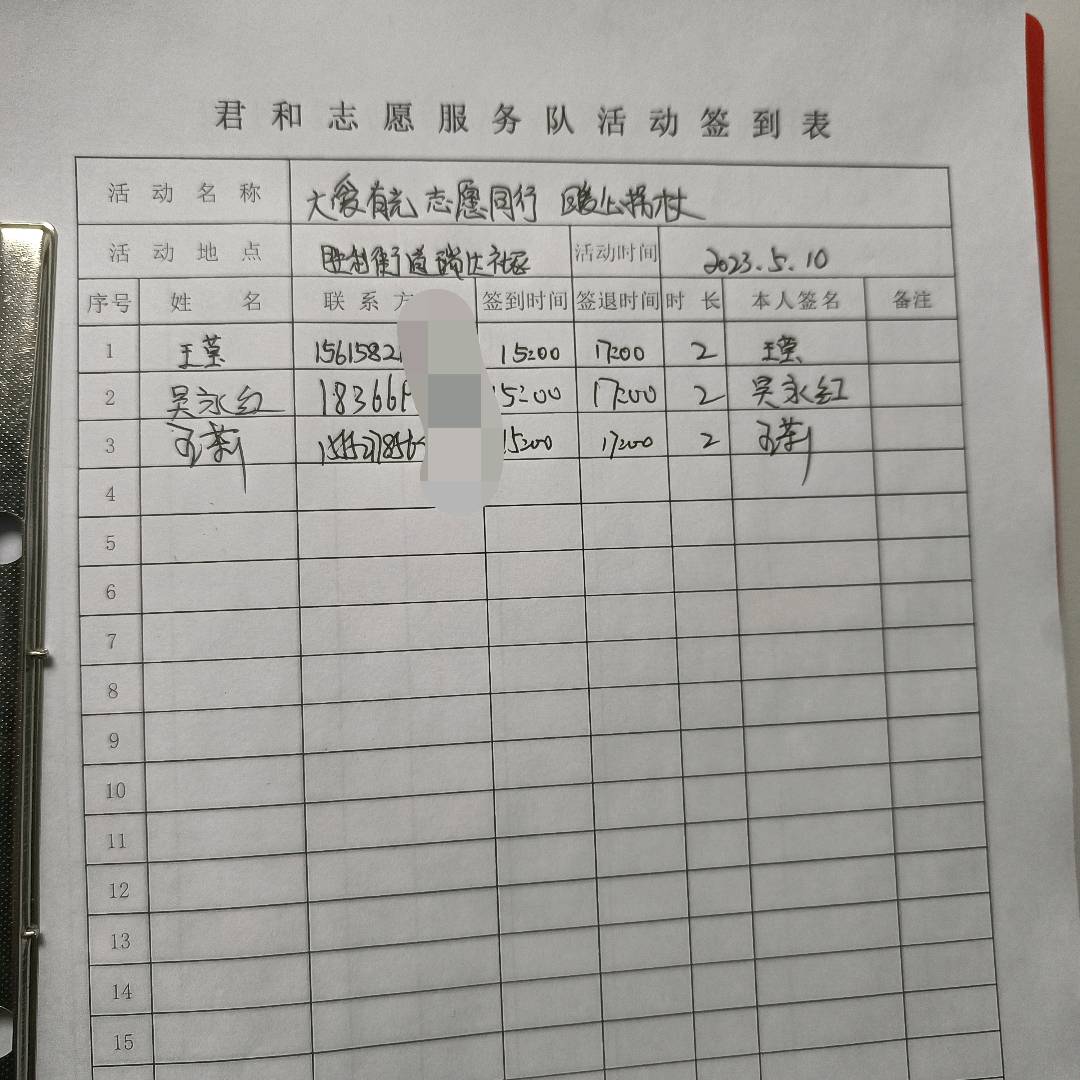 君和志愿服务队活动签到表
活动名称 大爱有光 志愿同行 暖心拐杖
活动地点 胜利街道瑞达社区 活动时间 2023.5.10
序号 姓名 联系方 签到时间 签退时间 时长 本人签名 备注
1 王莹 1561582 15:00 17:00 2 王莹
2 吴永红 18366 15:00 17:00 2 吴永红
3 15:00 17:00 2
4
5
6
7
8
9
10
11
12
13
14
15